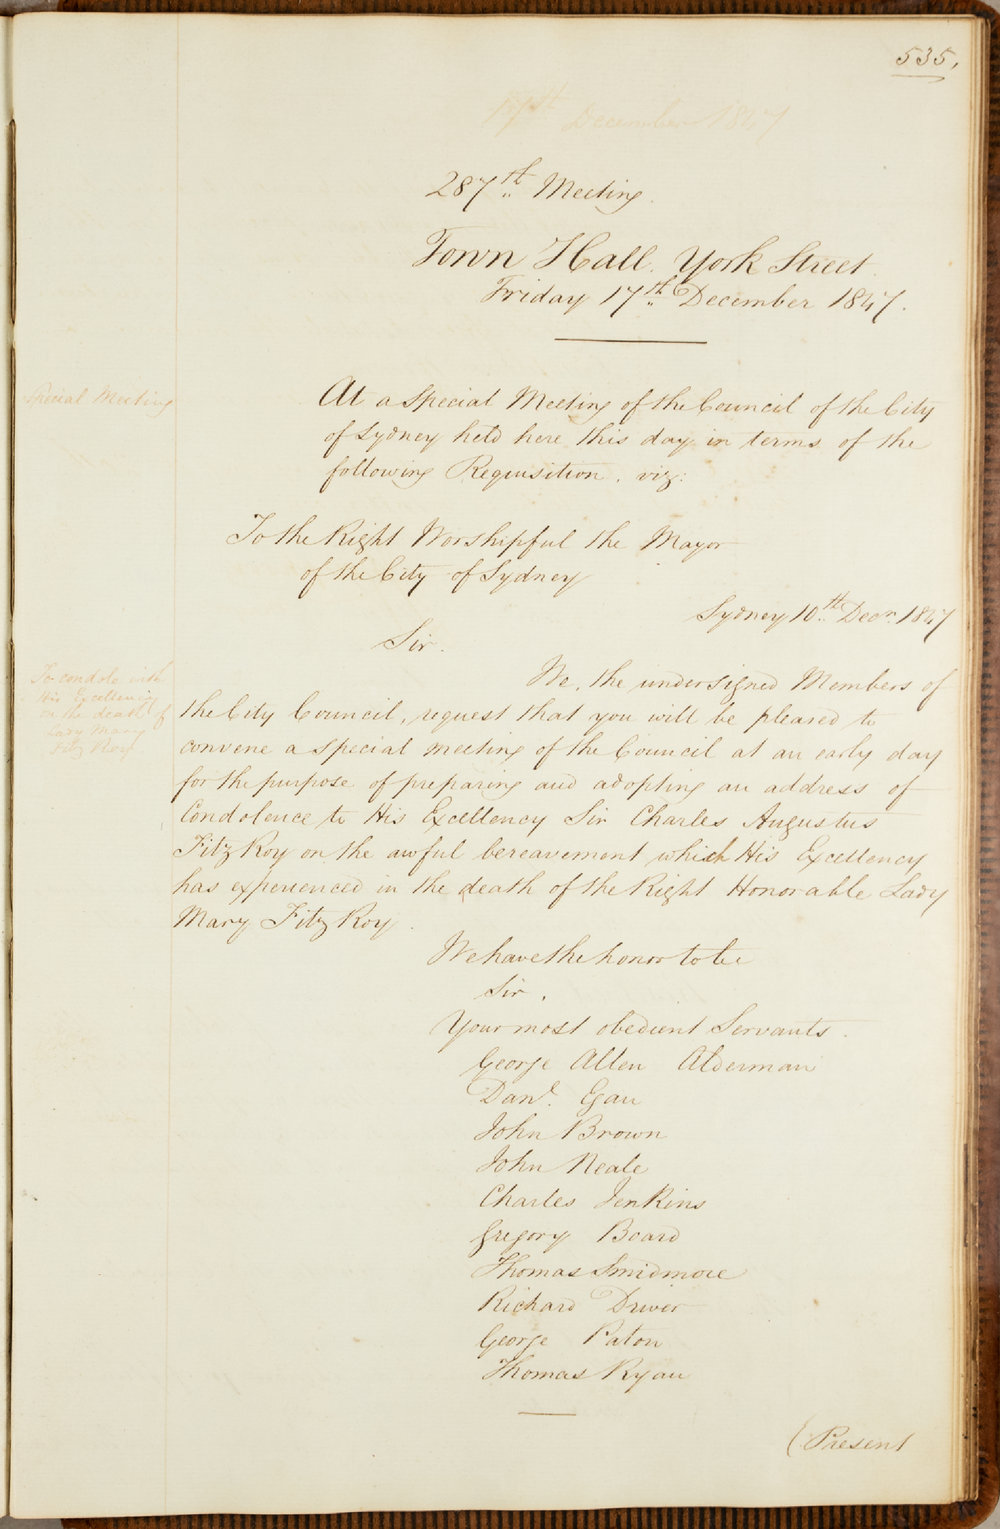 535,
17th December 1847
287th Meeting.
Town Hall. York Street
Friday 17th December 1847.
Special Meeting
At a Special Meeting of the Council of the City
of Sydney held here this day in terms of the
following Requisition, viz:
To the Right Worshipful the Mayor
of the City of Sydney
Sydney 10th Decr. 1847
Sir.
To condole with
His Excellency
on the death of
Lady Mary
Fitz Roy.
We, the undersigned Members of
the City Council, request that you will be pleased to
convene a special meeting of the Council at an early day
for the purpose of preparing and adopting an address of
Condolence to His Excellency Sir Charles Augustus
Fitz Roy on the awful bereavement which His Excellency
has experienced in the death of the Right Honorable Lady
Mary Fitz Roy.
We have the honor to be
Sir,
Your most obedient Servants.
George Allen Alderman
Danl. Egan
John Brown
John Neale
Charles Jenkins
Gregory Board
Thomas Smidmore
Richard Driver
George Paton
Thomas Ryan
(Present